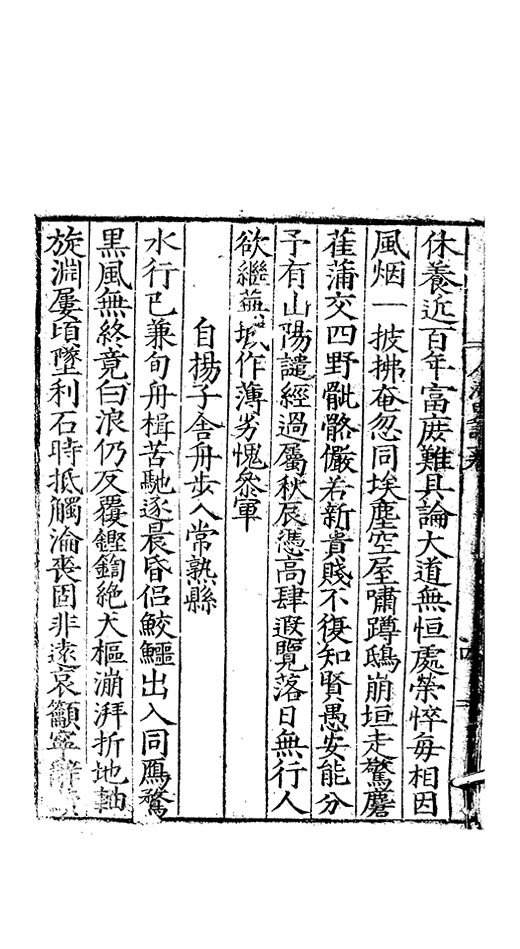 休養近百年富庶難具論大道無恒處榮悴每相因
風烟一披拂奄忽同埃塵空屋嘯蹲鴟崩垣走驚麏
萑蒲交四野骴骼儼若新貴賤不復知賢愚安能分
予有山陽譴經過屬秋辰憑高肆遐覽落日無行人
欲繼蕪城作薄劣愧叅軍
自楊子舍舟步入常熟縣
水行已兼旬舟楫苦馳逐晨昏侣鮫鱷出入同鴈鶩
黒風無終竟白浪仍反覆鏗鍧絶天樞漰湃折地軸
旋淵屢頃墜利石時抵觸淪喪固非遠哀籲寧